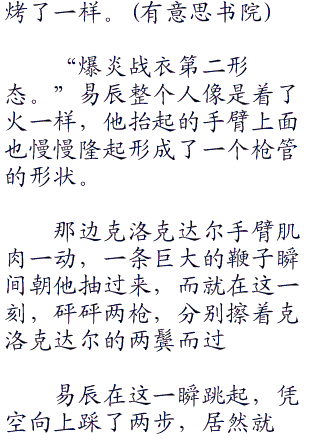 烤了一样。(有意思书院)
“爆炎战衣第二形
态。”易辰整个人像是着了
火一样，他抬起的手臂上面
也慢慢隆起形成了一个枪管
的形状。
那边克洛克达尔手臂肌
肉一动，一条巨大的鞭子瞬
间朝他抽过来，而就在这一
刻，砰砰两枪，分别擦着克
洛克达尔的两鬓而过
易辰在这一瞬跳起，凭
空向上踩了两步，居然就